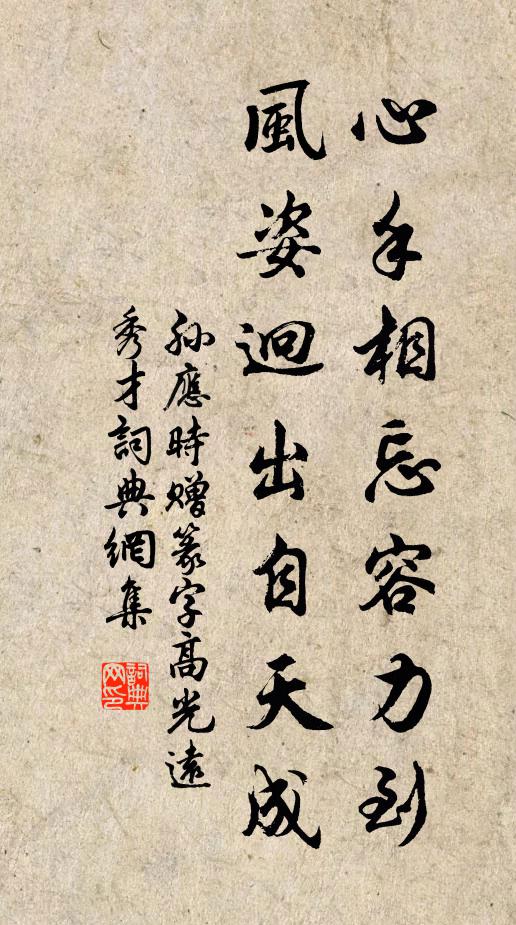 心手相忘容力到
風姿迥出自天成
孫應時贈篆字高光遠
秀才詞典網集
詞典
网印